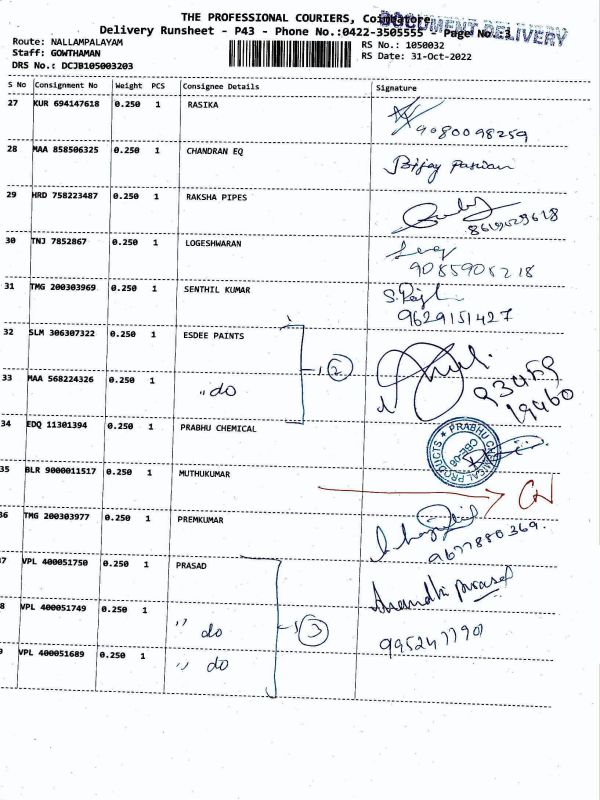 THE PROFESSIONAL COURIERS, Coimbatore
DOCUMENT DELIVERY
Delivery Runsheet - P43 - Phone No.:0422-3505555 - Page No.:3
Route: NALLAMPALAYAM
RS No.: 1050032
Staff: GOWTHAMAN
RS Date: 31-Oct-2022
DRS No.: DCJB105003203
S No Consignment No Weight PCS Consignee Details Signature
27 KUR 694147618 0.250 1 RASIKA
9080098259
28 MAA 858506325 0.250 1 CHANDRAN EQ
Bijay
29 HRD 758223487 0.250 1 RAKSHA PIPES
30 TNJ 7852867 0.250 1 LOGESHWARAN
9085905218
31 TMG 200303969 0.250 1 SENTHIL KUMAR
9629151427
32 SLM 306307322 0.250 1 ESDEE PAINTS
2
33 MAA 568224326 0.250 1 ,, do
93459
19460
34 EDQ 11301394 0.250 1 PRABHU CHEMICAL
PRABHU CHEMICAL PRODUCTS
CBE-06
35 BLR 9000011517 0.250 1 MUTHUKUMAR
36 TMG 200303977 0.250 1 PREMKUMAR
9677880369.
7 VPL 400051750 0.250 1 PRASAD
Anandhi prasad
8 VPL 400051749 0.250 1 ,, do
3
9952477901
9 VPL 400051689 0.250 1 ,, do